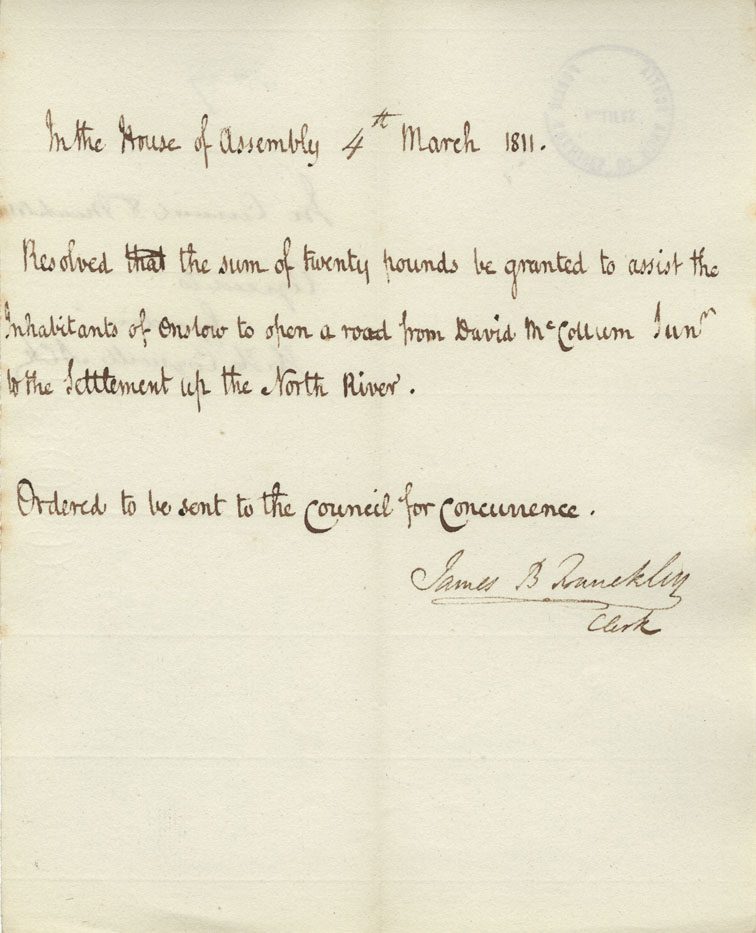 In the House of Assembly 4th March 1811.
Resolved that the sum of twenty pounds be granted to assist the
Inhabitants of Onslow to open a road from David McCollum Junr
to the Settlement up the North River.
Ordered to be sent to the Council for Concurrence.
James B Franckley
Clerk